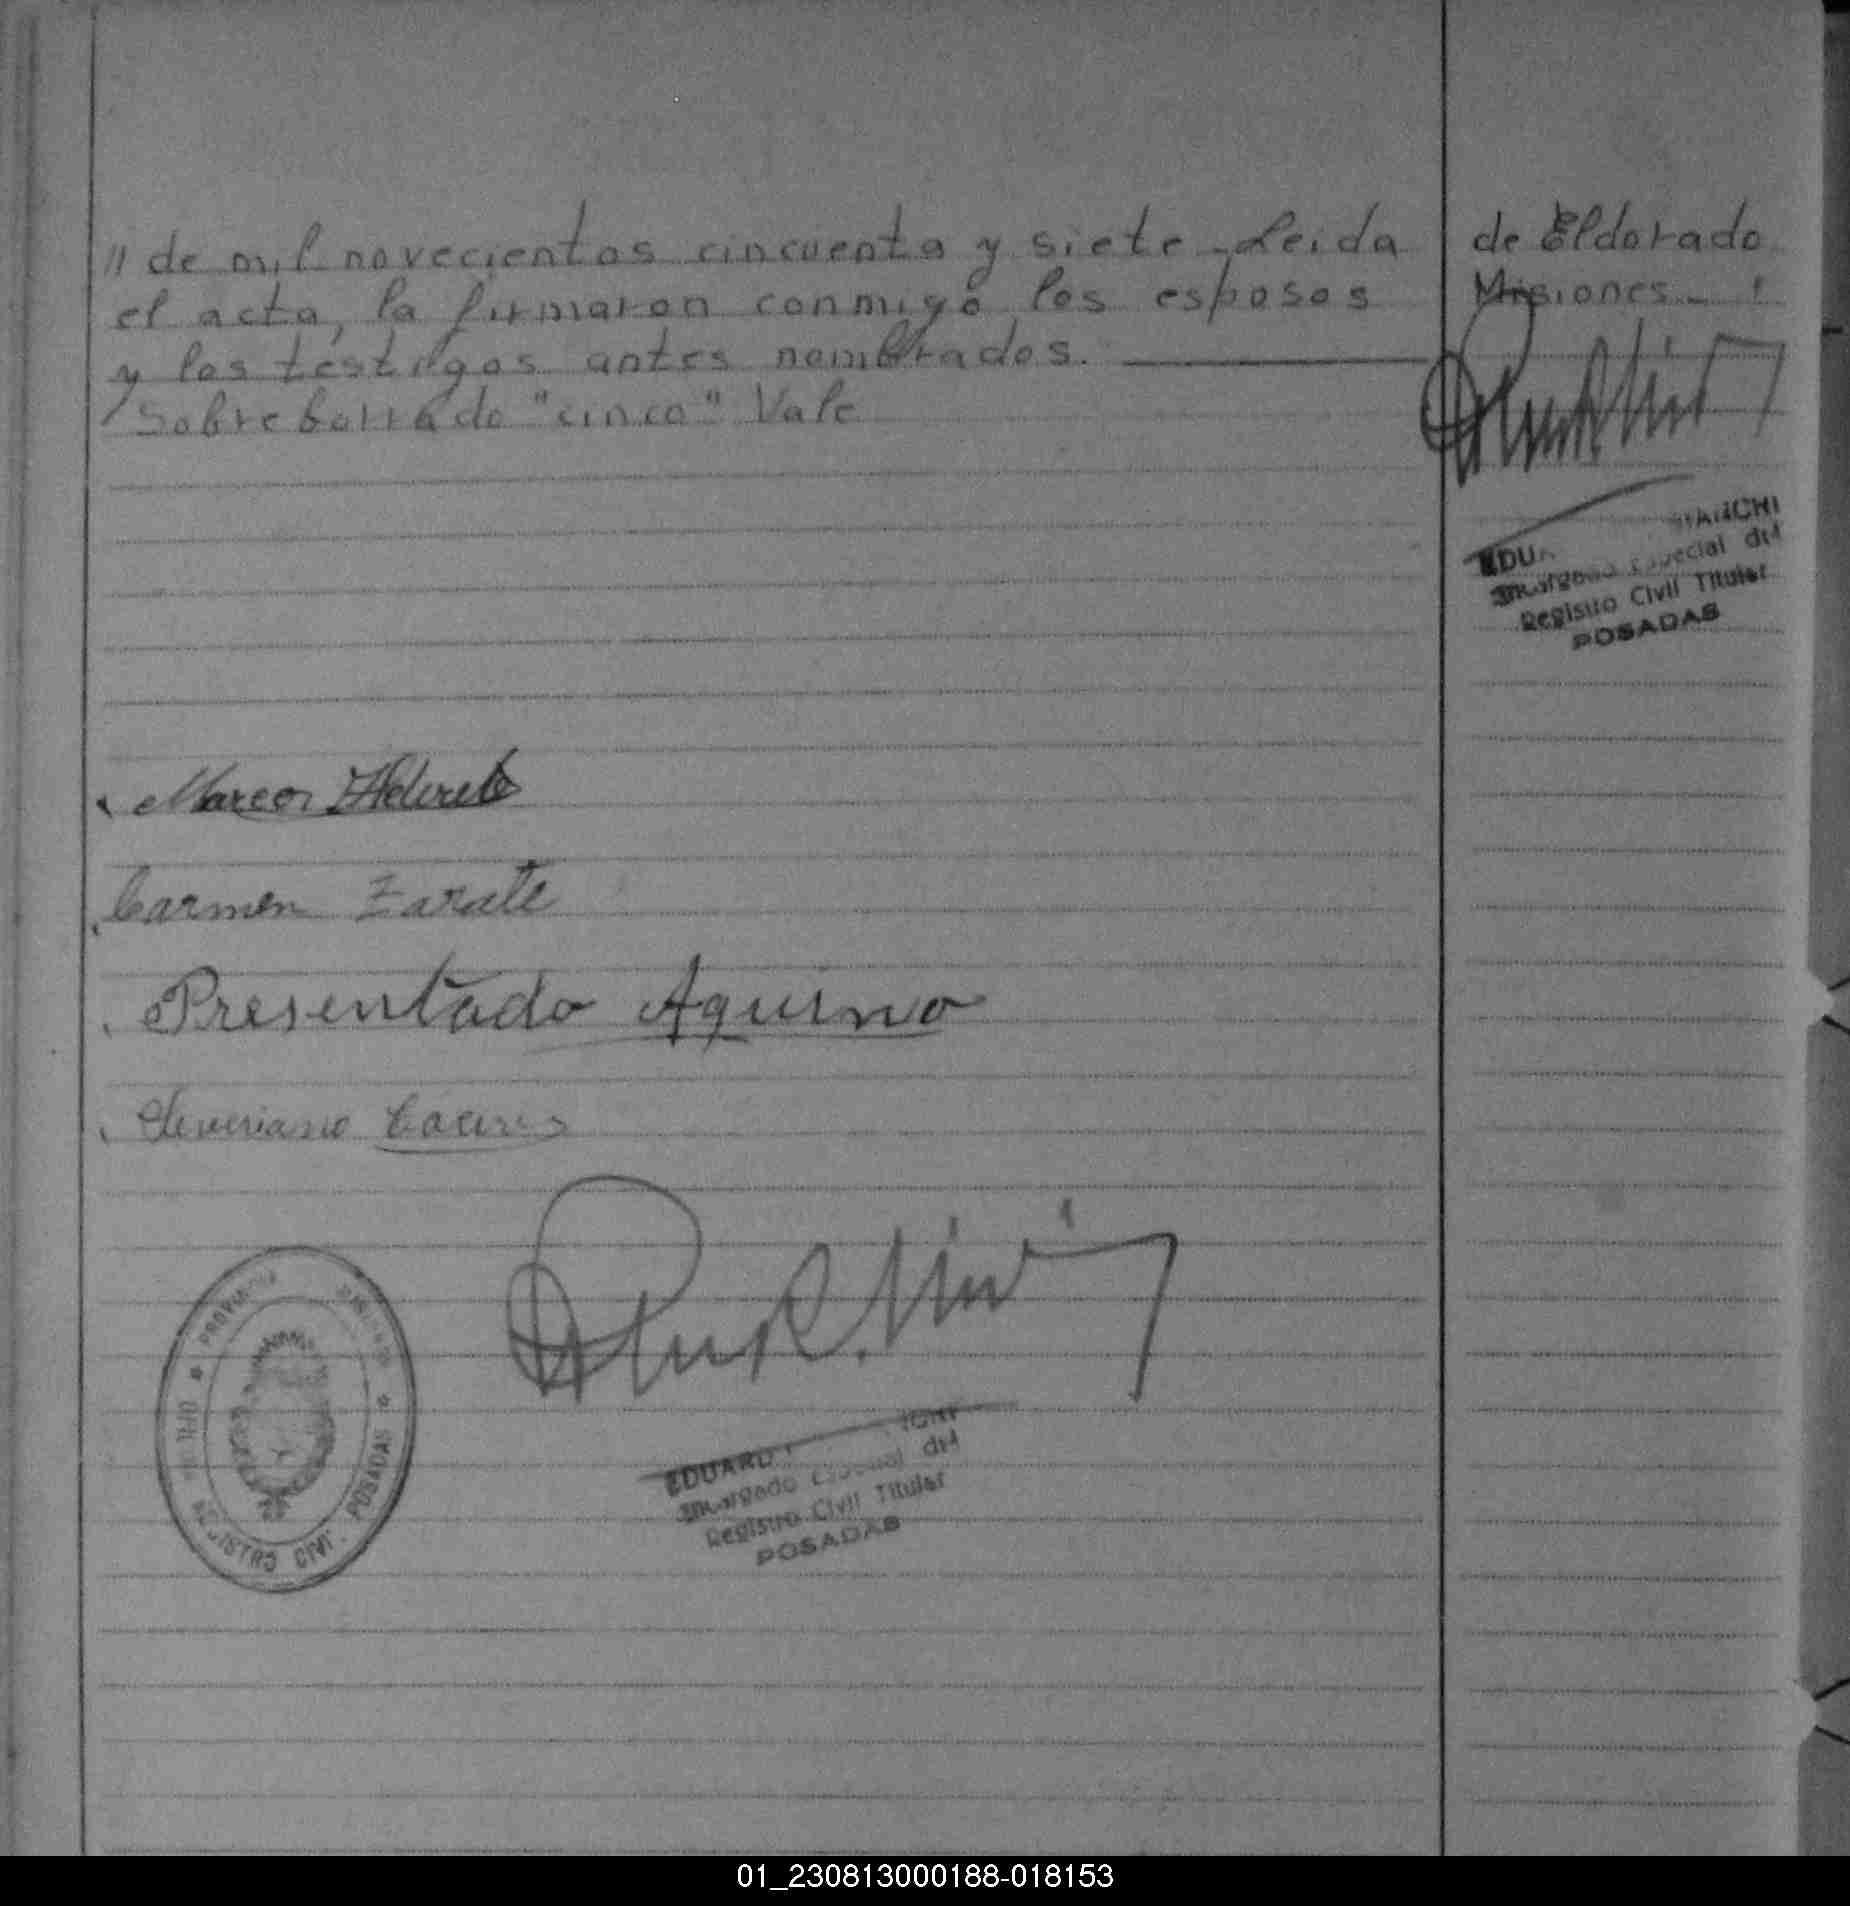 // de mil novecientos cincuenta y siete. Leida
el acta, la firmaron conmigo los esposos
y los testigos antes nombrados.
Sobreborrado "cinco" Vale
de Eldorado
Misiones.
EDU ANCHI
Encargado Especial del
Registro Civil Titular
POSADAS
Marcos
Carmen Zarate
Presentado Aquino
Severiano Caceres
PROVINCIA
REGISTRO CIVIL POSADAS
EDUARD ICHI
Encargado Especial del
Registro Civil Titular
POSADAS
01_230813000188-018153